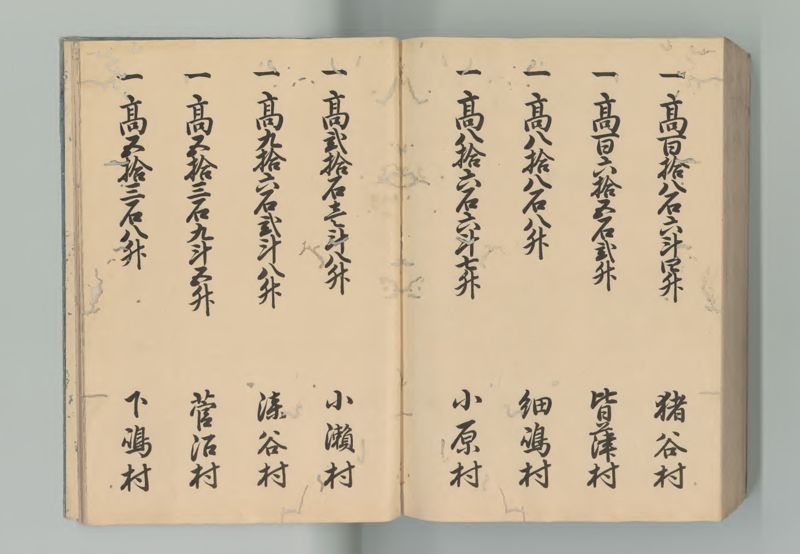 一 高百拾八石六斗四升 猪谷村
一 高百六拾五石弐升 皆葎村
一 高八拾八石八升 細嶋村
一 高八拾六石六斗七升 小原村
一 高弐拾石壱斗八升 小瀬村
一 高九拾六石弐斗八升 漆谷村
一 高五拾三石九斗五升 菅沼村
一 高五拾三石八升 下嶋村